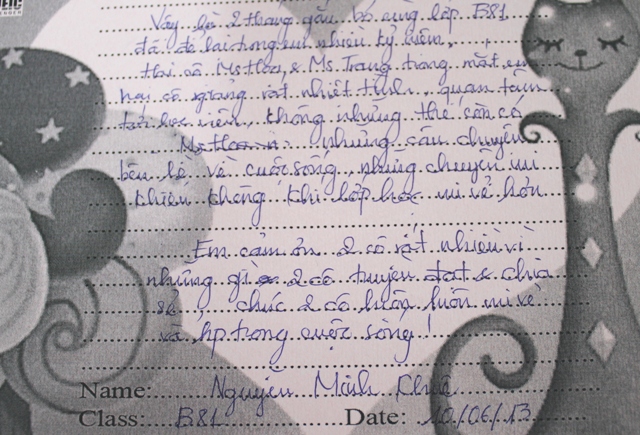 Vậy là 2 tháng gắn bó cùng lớp B81
đã để lại trong em nhiều kỷ niệm,
Hai cô Ms Hoa, & Ms. Trang trong mắt em
hai cô giảng rất nhiệt tình, quan tâm
tới học viên, không những thế còn có
Ms Hoa những câu chuyện
bên lề về cuộc sống, những chuyện
khiến không khí lớp học vui vẻ hơn
Em cảm ơn 2 cô rất nhiều vì
những gì 2 cô truyền đạt & chia
sẻ, chúc 2 cô luôn luôn vui vẻ
và hp trong cuộc sống!
Name: Nguyễn Minh
Class: B81 Date: 10/06/13